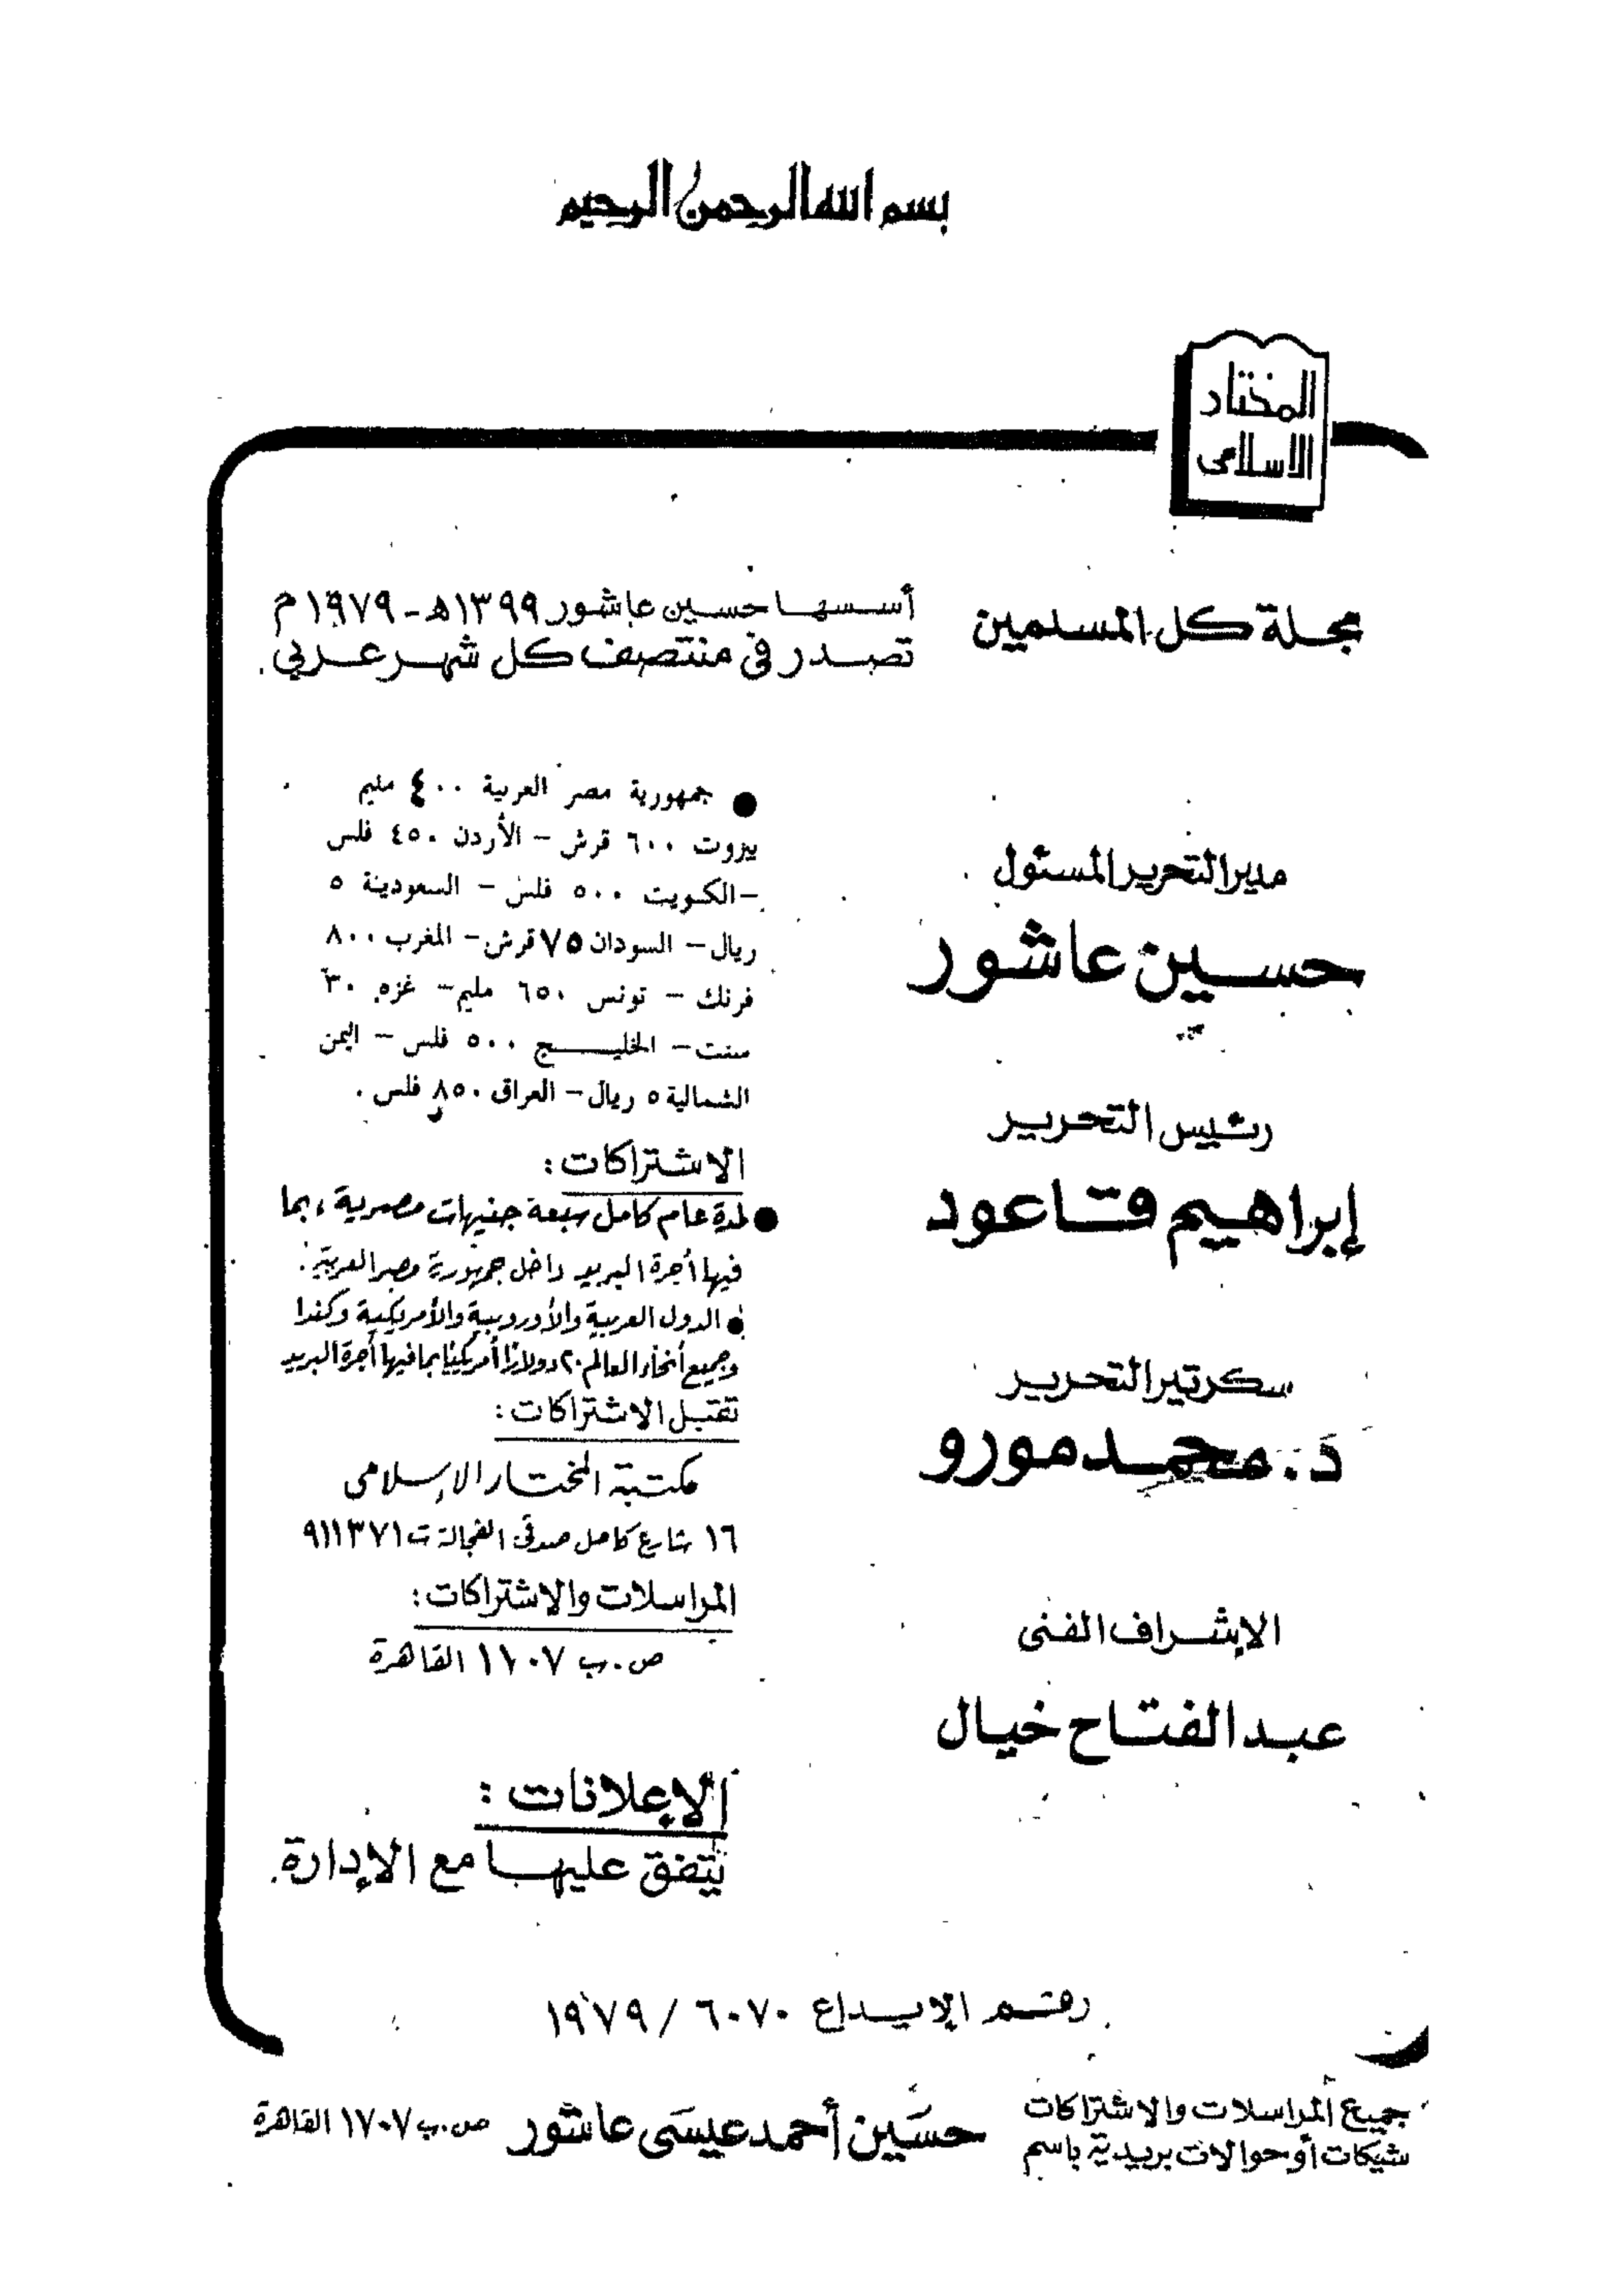 بسم الله الرحمن الرحيم
المختار
الاسلامى
مجلة كل المسلمين
أسسها حسين عاشور ١٣٩٩هـ - ١٩٧٩م
تصدر فى منتصف كل شهر عربي .
مدير التحرير المسئول
حسين عاشور
رئيس التحرير
إبراهيم قاعود
سكرتير التحرير
د. محمد مورو
الإشراف الفنى
عبد الفتاح خيال
● جمهورية مصر العربية ٤٠٠ مليم
بيروت ٦٠٠ قرش – الأردن ٤٥٠ فلس
– الكويت ٥٠٠ فلس – السعودية ٥
ريال – السودان ٧٥ قرش – المغرب ٨٠٠
فرنك – تونس ٦٥٠ مليم – غزه ٣٠
سنت – الخليج ٥٠٠ فلس – اليمن
الشمالية ٥ ريال – العراق ٨٥٠ فلس .
الاشتراكات :
● لمدة عام كامل سبعة جنيهات مصرية ، بما
فيها أجرة البريد داخل جمهورية مصر العربية .
● الدول العربية والأوروبية والأمريكية وكندا
وجميع أنحاء العالم ٢٠ دولارًا أمريكيًا بما فيها أجرة البريد
تقبل الاشتراكات :
مكتبة المختار الإسلامى
١٦ شارع كامل صدقى الفجالة ت ٩١١٣٧١
المراسلات والاشتراكات :
ص.ب ١٧٠٧ القاهرة
الإعلانات :
يتفق عليها مع الإدارة.
رقم الإيداع ٦٠٧٠ / ١٩٧٩
جميع المراسلات والاشتراكات
شيكات أو حوالات بريدية باسم
حسَين أحمد عيسَى عاشور ص.ب ١٧٠٧ القاهرة